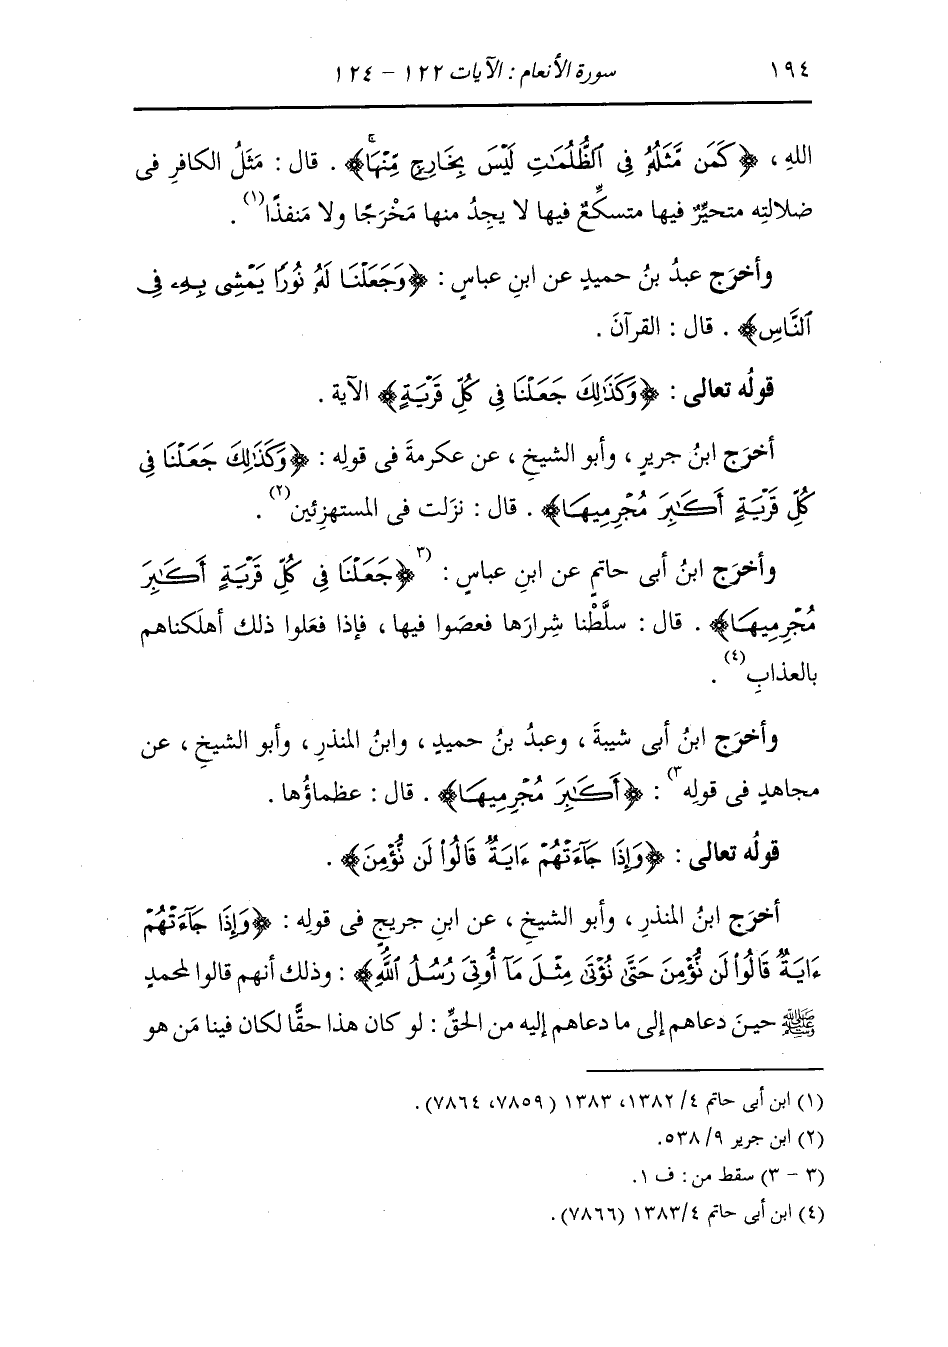 ١٩٤ سورة الأنعام : الآيات ١٢٢ - ١٢٤
اللهِ ، ﴿كَمَن مَّثَلُهُۥ فِى ٱلظُّلُمَٰتِ لَيْسَ بِخَارِجٍ مِّنْهَاۚ﴾ . قال : مَثَلُ الكافرِ فى
ضلالتِه متحيِّرٌ فيها متسكِّعٌ فيها لا يجِدُ منها مَخْرَجًا ولا مَنفذًا(١) .
وأخرَج عبدُ بنُ حميدٍ عن ابنِ عباسٍ : ﴿وَجَعَلْنَا لَهُۥ نُورًا يَمْشِى بِهِۦ فِى
ٱلنَّاسِ﴾ . قال : القرآنَ .
قولُه تعالى : ﴿وَكَذَٰلِكَ جَعَلْنَا فِى كُلِّ قَرْيَةٍ﴾ الآية .
أخرَج ابنُ جريرٍ ، وأبو الشيخِ ، عن عكرمةَ فى قولِه : ﴿وَكَذَٰلِكَ جَعَلْنَا فِى
كُلِّ قَرْيَةٍ أَكَٰبِرَ مُجْرِمِيهَا﴾ . قال : نزَلت فى المستهزِئين(٢) .
وأخرَج ابنُ أبى حاتمٍ عن ابنِ عباسٍ : (٣﴿جَعَلْنَا فِى كُلِّ قَرْيَةٍ أَكَٰبِرَ
مُجْرِمِيهَا﴾ . قال : سلَّطْنا شِرارَها فعصَوا فيها ، فإذا فعَلوا ذلك أهلَكناهم
بالعذابِ(٤) .
وأخرَج ابنُ أبى شيبةَ ، وعبدُ بنُ حميدٍ ، وابنُ المنذرِ ، وأبو الشيخِ ، عن
مجاهدٍ فى قولِه٣) : ﴿أَكَٰبِرَ مُجْرِمِيهَا﴾ . قال : عظماؤُها .
قولُه تعالى : ﴿وَإِذَا جَآءَتْهُمْ ءَايَةٌ قَالُوا۟ لَن نُّؤْمِنَ﴾ .
أخرَج ابنُ المنذرِ ، وأبو الشيخِ ، عن ابنِ جريجٍ فى قولِه : ﴿وَإِذَا جَآءَتْهُمْ
ءَايَةٌ قَالُوا۟ لَن نُّؤْمِنَ حَتَّىٰ نُؤْتَىٰ مِثْلَ مَآ أُوتِىَ رُسُلُ ٱللَّهِ﴾ : وذلك أنهم قالوا لمحمدٍ
ﷺ حينَ دعاهم إلى ما دعاهم إليه من الحقِّ : لو كان هذا حقًّا لكان فينا مَن هو
(١) ابن أبى حاتم ٤/ ١٣٨٢، ١٣٨٣ (٧٨٥٩، ٧٨٦٤).
(٢) ابن جرير ٩/ ٥٣٨.
(٣ - ٣) سقط من : ف ١.
(٤) ابن أبى حاتم ١٣٨٣/٤ (٧٨٦٦).